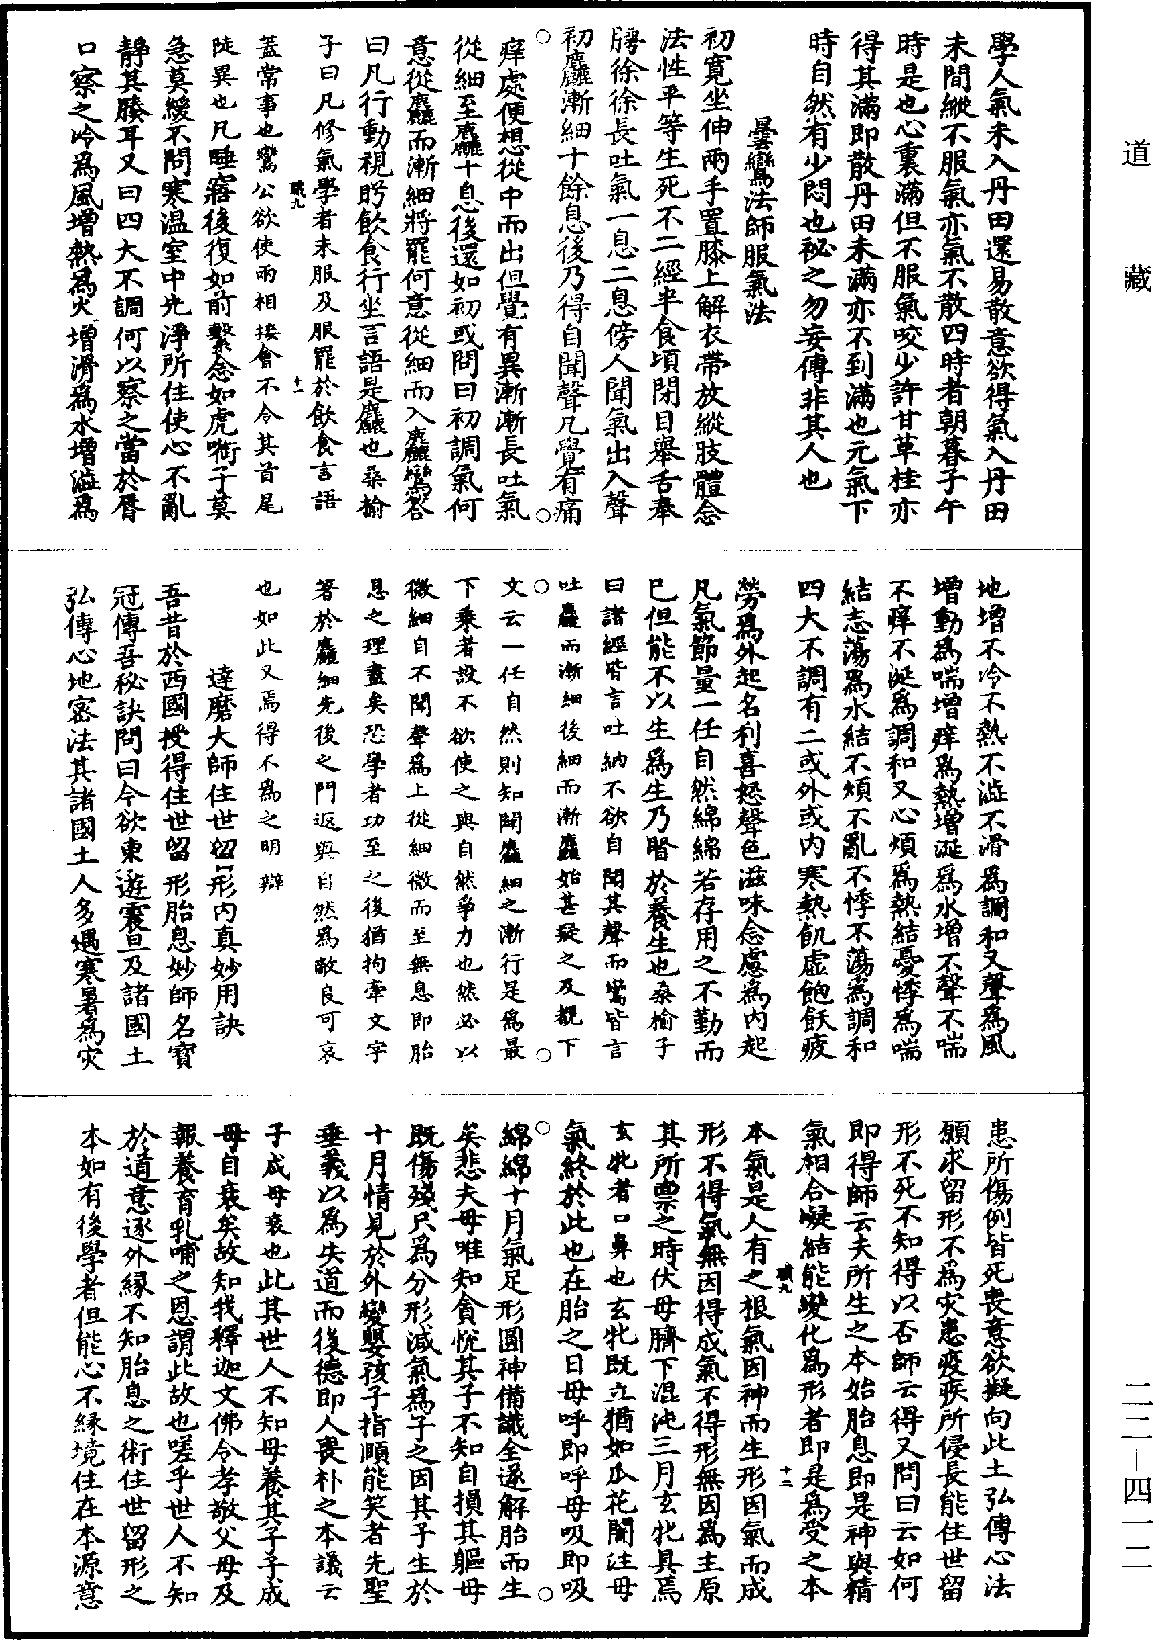 道藏
二二—四一二
學人氣未入丹田還易散意欲得氣入丹田
未間縱不服氣亦氣不散四時者朝暮子午
時是也心裏滿但不服氣咬少許甘草桂亦
得其滿即散丹田未滿亦不到滿也元氣下
時自然有少悶也秘之勿妄傳非其人也
曇鸞法師服氣法
初寬坐伸兩手置膝上解衣帶放縱肢體念
法性平等生死不二經半食頃閉目舉舌奉
腭徐徐長吐氣一息二息傍人聞氣出入聲
初麤漸細十餘息後乃得自聞聲凡覺有痛
痒處便想從中而出但覺有異漸漸長吐氣
從細至麤十息後還如初或問曰初調氣何
意從麤而漸細將罷何意從細而入麤鸞答
曰凡行動視眄飲食行坐言語是麤也桑榆
子曰凡修氣學者未服及服罷於飲食言語
職九
十一
蓋常事也鸞公欲使兩相接會不令其首尾
陡異也凡睡寤後復如前繫念如虎銜子莫
急莫緩不問寒温室中先淨所住使心不亂
靜其膝耳又曰四大不調何以察之當於脣
口察之冷為風增熱為火增滑為水增澁為
地增不冷不熱不澁不滑為調和又聲為風
增動為喘增痒為熱增涎為水增不聲不喘
不痒不涎為調和又心煩為熱結憂悸為喘
結志蕩為水結不煩不亂不悸不蕩為調和
四大不調有二或外或内寒熱飢虛飽飫疲
勞為外起名利喜怒聲色滋味念慮為内起
凡氣節量一任自然綿綿若存用之不勤而
已但能不以生為生乃賢於養生也桑榆子
曰諸經皆言吐納不欲自聞其聲而鸞皆言
吐麤而漸細後細而漸麤始甚疑之及覩下
文云一任自然則知聞麤細之漸行是為最
下乘者設不欲使之與自然爭力也然必以
微細自不聞聲為上從細微而至無息即胎
息之理盡矣恐學者功至之後猶拘牽文字
著於麤細先後之門返與自然為敵良可哀
也如此又焉得不為之明辯
達磨大師住世留形内真妙用訣
吾昔於西國授得住世留形胎息妙師名寳
冠傳吾秘訣問曰今欲東遊震旦及諸國土
弘傳心地密法其諸國土人多遇寒暑為灾
患所傷例皆死喪意欲擬向此土弘傳心法
願求留形不為灾患疫疾所侵長能住世留
形不死不知得以否師云得又問曰云如何
即得師云夫所生之本始胎息即是神與精
氣相合凝結能變化為形者即是為受之本
本氣是人有之根氣因神而生形因氣而成
職九
十二
形不得氣無因得成氣不得形無因為主原
其所稟之時伏母臍下混沌三月玄牝具焉
玄牝者口鼻也玄牝既立猶如瓜花闇注母
氣終於此也在胎之日母呼即呼母吸即吸
綿綿十月氣足形圓神備識全遂解胎而生
矣悲夫母唯知貪悅其子不知自損其軀母
既傷殘只為分形減氣為子之因其子生於
十月情見於外變嬰孩子指顧能笑者先聖
垂義以為失道而後德即人喪朴之本議云
子成母衰也此其世人不知母養其子子成
母自衰矣故知我釋迦文佛令孝敬父母及
報養育乳哺之恩謂此故也嗟乎世人不知
於道意逐外緣不知胎息之術住世留形之
本如有後學者但能心不緣境住在本源意